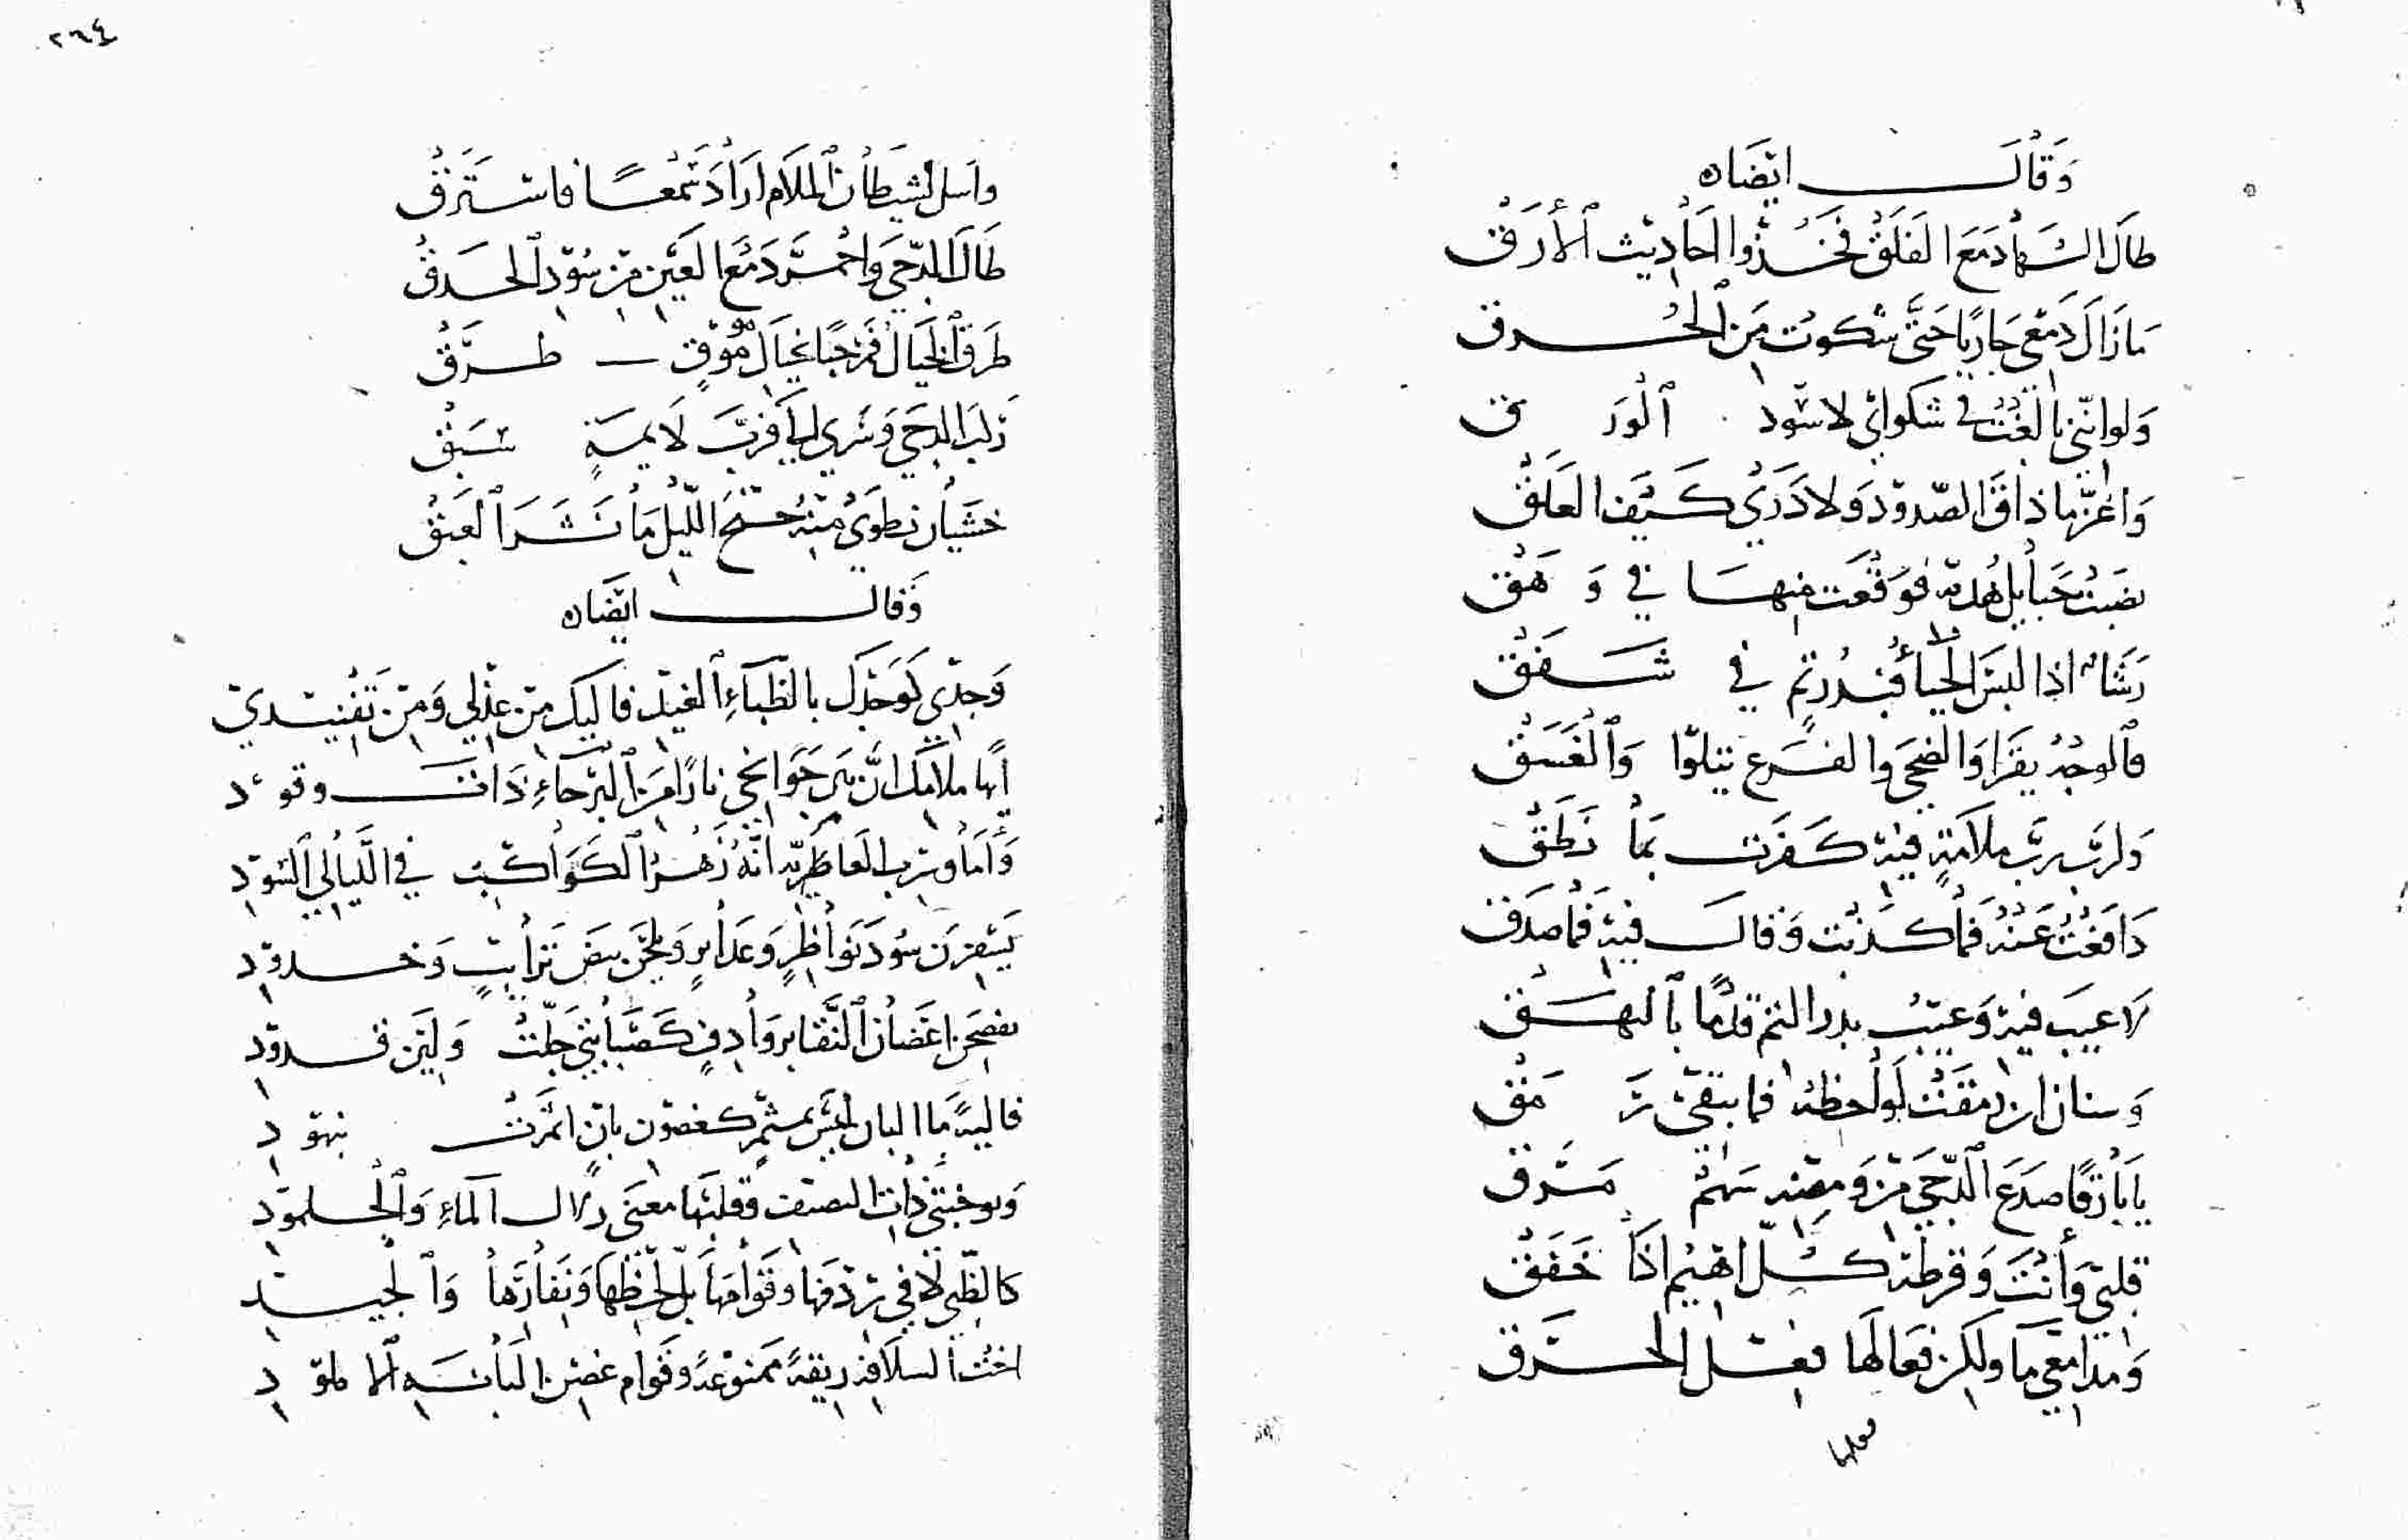 وَقَالَ ايضًا
طال السها دمع الفلق فخذوا احاديث الأرق
ما زال دمعي جاريًا حتى شكوت من الحرق
ولو انني بالغت في شكواي لاسود الورق
واغر ما ذاق الصدود ولا درى كيف العلق
نصبت حبايل هدبه فوقعت منها في وهق
رشأ اذا لبس الحيا فبدر تم في شفق
فالوجه يقرا والضحى والفرع يتلوا والغسق
ولرب رب ملامة فيه كفرت بما نطق
دافعت عنه فما كذبت وقال فيه فما صدق
لا عيب فيه وعيب بدر التم قدمًا بالبهق
وسنان ان رمقت لواحظه فما يبقي رمق
يا بارقًا صدع الدجى من ومضه سهم مرق
قلبي وأنت وقرطه كل اهيم اذا خفق
ومدامعي ما ولكن فعالها فعل الحرق
٢٦٤
واسل لشيطان الملام اراد سمعًا فاسترق
طال الدجى واحمر دمع العين من سود الحدق
طرق الخيال فمرحبًا بخيال مومق طرق
ركب الدجى وسرى الي فرب لايمة سبق
خشيان نطوى منه جنح الليل ما نشر العبق
وقال ايضًا
وجدي كوجدك بالظباء الغيد فاليك من عذلي ومن تفنيدي
ايها ملامك ان بين جوانحي نارًا من البرحاء ذات وقود
وأما وسرب العاطرية انه زهر الكواكب في الليالي السود
يسفرن سود نواظر وغداير ويلحن بيض ترايب وخدود
يفضحن اغصان النقا بروادف كصبابتي جلت ولين قدود
قاليه ما البان لحين بمثمر كغصون بان اثمرت بنهود
وبوجنتي ذات النصيف وقلبها معنى زلال الماء والجلمود
كالظبي لا في ردفها وقوامها بل لحظها ونفارها والجيد
اخت السلافة ريقة ممنوعة وقوام غصن البانة الاملود